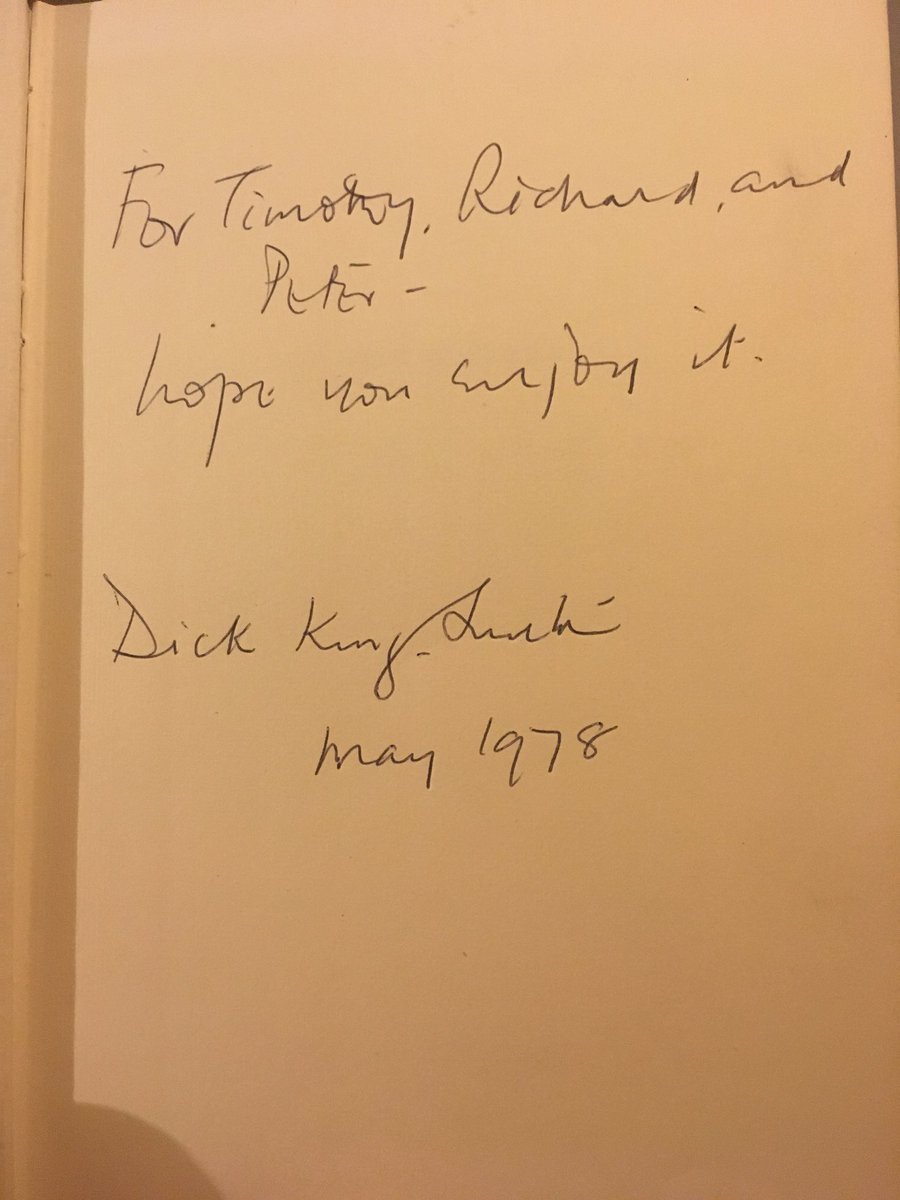 For Timothy, Richard, and
Peter -
hope you enjoy it.
Dick King-Smith
May 1978